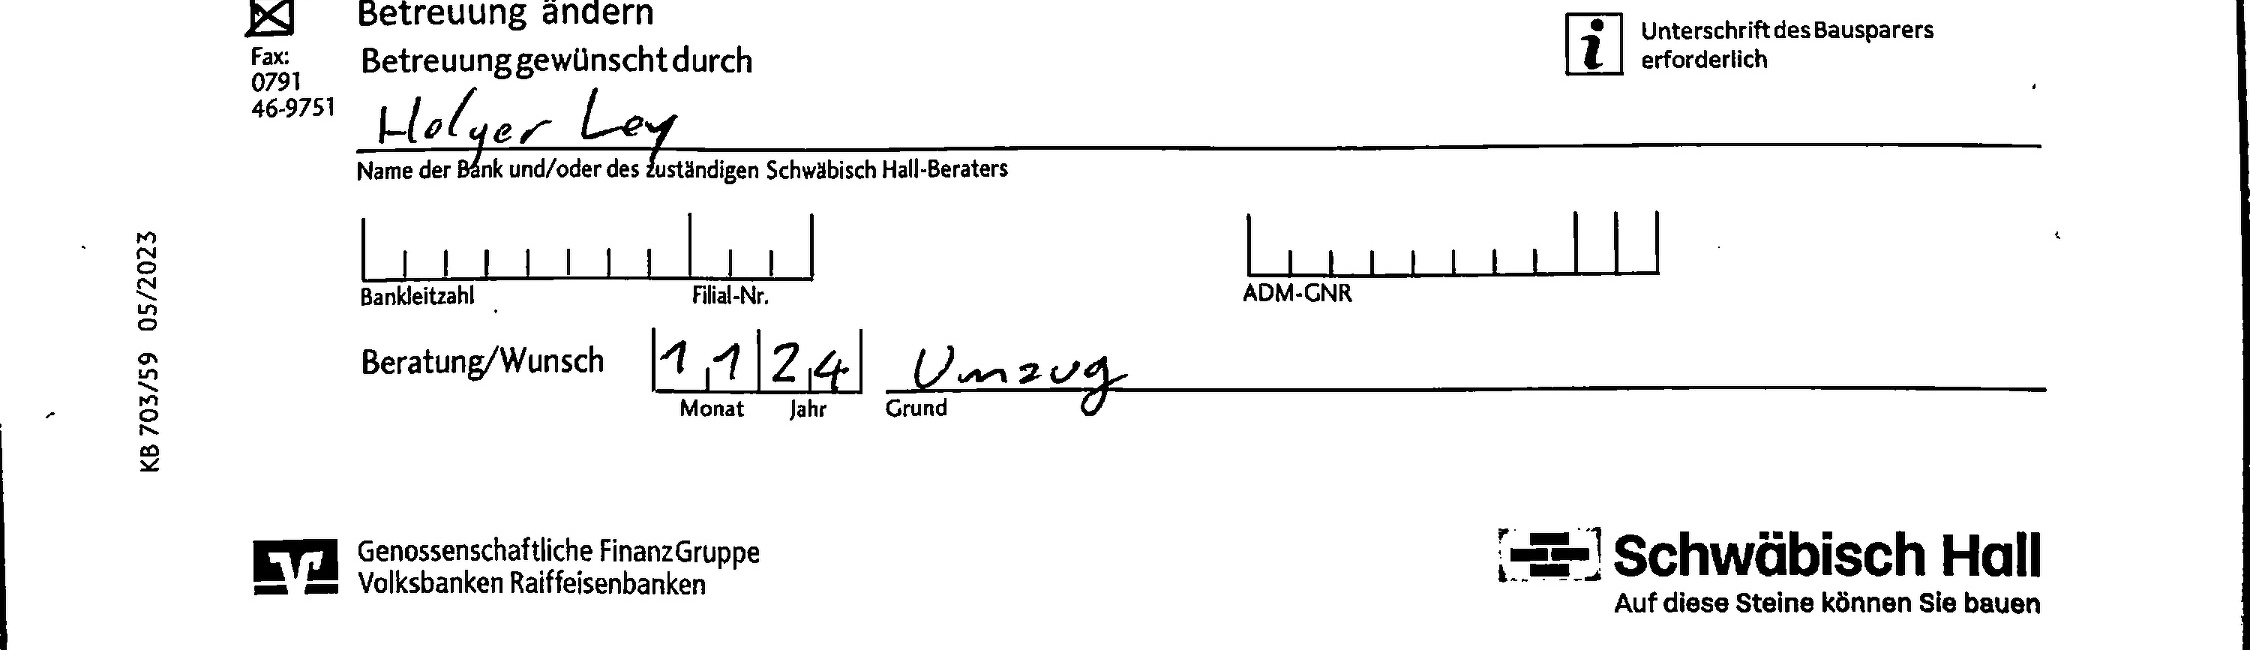 ☒ Betreuung ändern
Fax:
0791
46-9751
Betreuung gewünscht durch
i Unterschrift des Bausparers
erforderlich
Holger Ley
Name der Bank und/oder des zuständigen Schwäbisch Hall-Beraters
Bankleitzahl Filial-Nr. ADM-GNR
Beratung/Wunsch 11 24 Umzug
Monat Jahr Grund
KB 703/59 05/2023
Genossenschaftliche FinanzGruppe
Volksbanken Raiffeisenbanken
Schwäbisch Hall
Auf diese Steine können Sie bauen